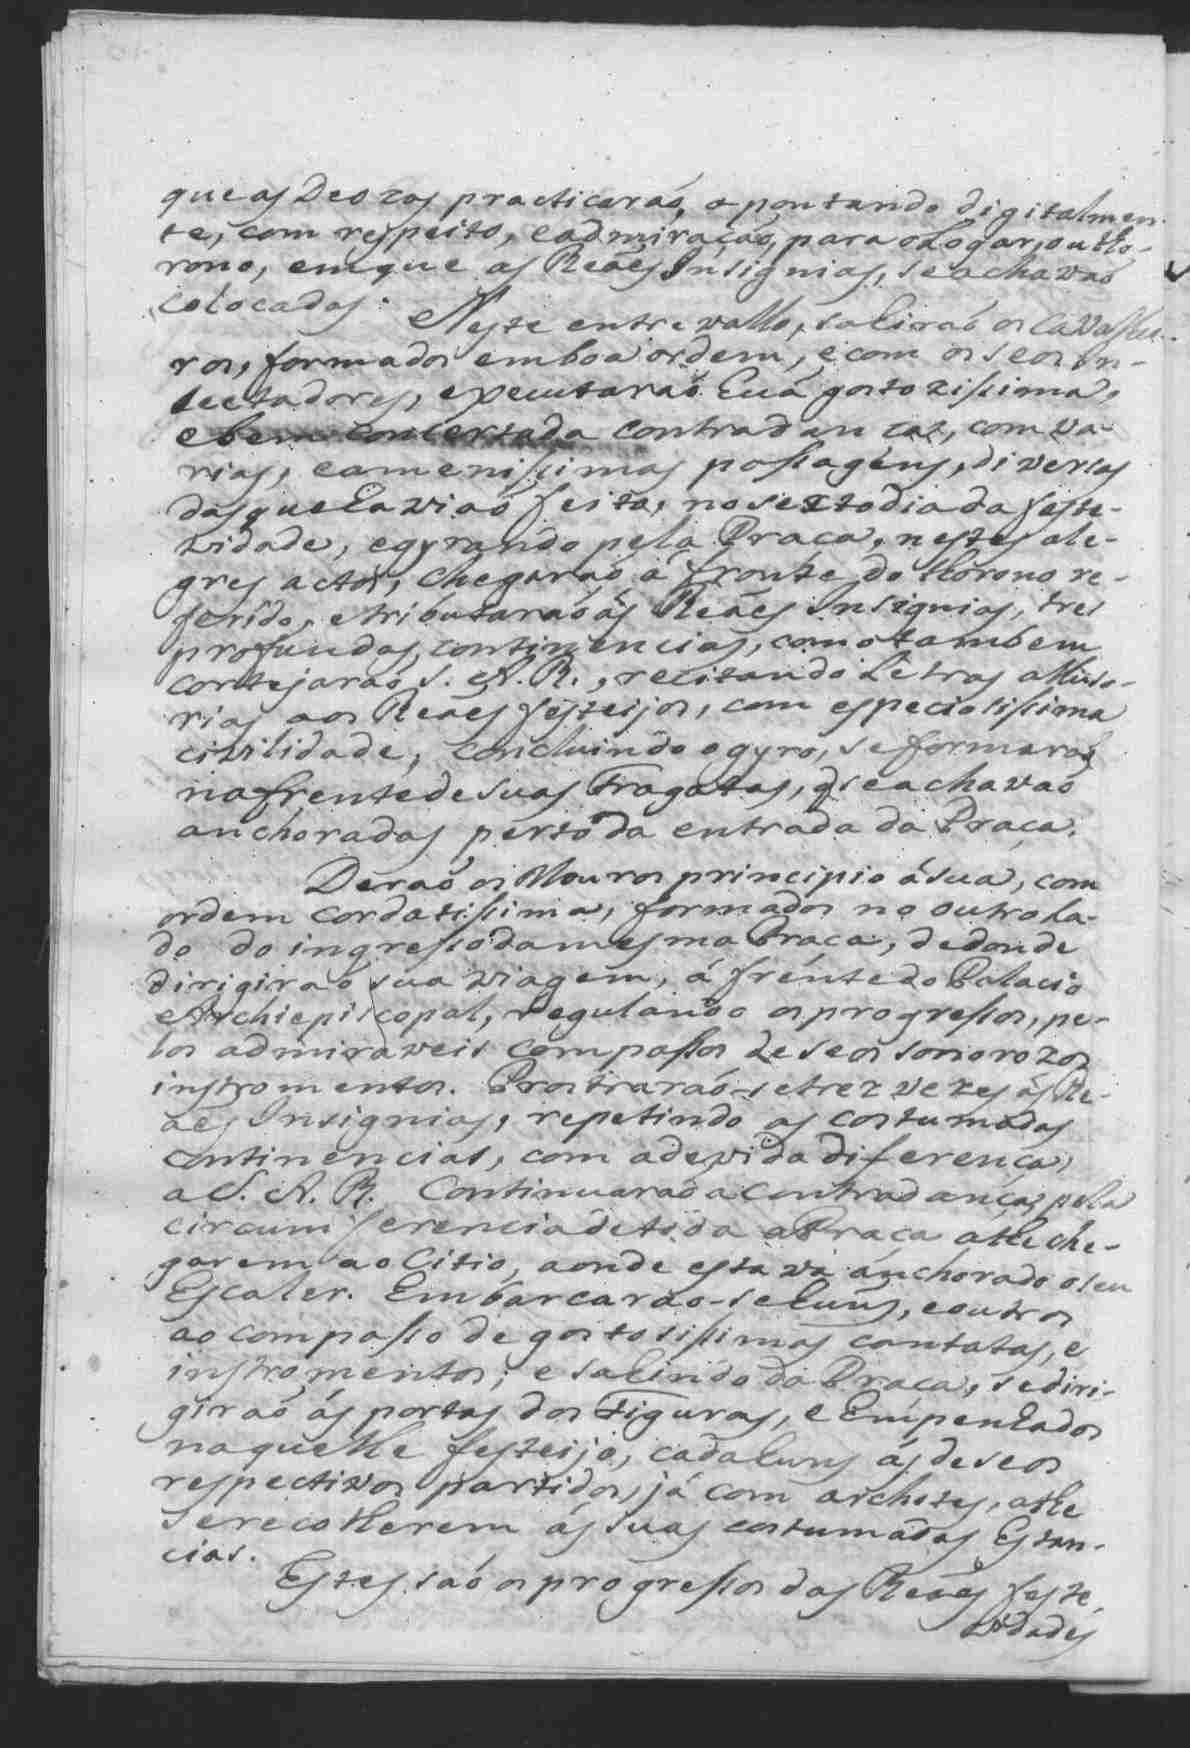 que as Deozas practicaraó, apontando digitalmen-
te, com respeito, e admiraçaó, para o Logar, ou tho-
rono, em que as Reáes Insignias, se achavaó
colocadas.
Neste entrevallo, sahiraó os Cavalhei-
ros, formados em boa ordem, e com os seos in-
sectadores, executaraó huá gostozissima,
e bem concertada contradanza, com va-
rias, e amenissimas passagéns, diversas
das que haviaó feito, no sexto dia da feste-
vidade, e gyrando pela Praca, nestes ale-
gres actos, chegaraó á fronte do thorono re-
ferido, e tributaraó ás Reáes Insignias, tres
profundas, continencias, como tambem
cortejaraó S. A. R., recitando Letras alluso-
rias aos Reáes festeijos, com especiosissima
civilidade, concluindo o gyro, se formaraó
na frente de suas Fragatas, q̃ se achavaó
anchoradas perto da entrada da Praça.
Deraó os Mouros principio á sua, com
ordem cordatissima, formados no outro la-
do do ingresso da mesma Praca, de donde
dirigiraó sua viagem, á frente do Palacio
Archiepiscopal, regulando os progressos, pe-
los admiraveis compassos de seos sonorozos
instromentos. Prostraraó-se trez vezes ás Re-
aes Insignias, repetindo as costumadas
continencias, com a devida diferença,
a S. A. R. Continuaraó a contradança, pela
circumferencia de toda a Praca athe che-
garem ao Citio, aonde estava anchorado o seu
Escaler. Embarcarao-se huns, e outros
ao compasso de gostosissimas cantatas, e
instromentos; e sahindo da Praca, se diri-
giraó ás portas dos Figuras, e Empenhados
naquelle festeijo, cada huns ás de seos
respectivos partidos, já com archotes, athe
se recolherem ás suas costumadas Estan-
cias.
Estes saó os progressos das Reáes feste-
vidades